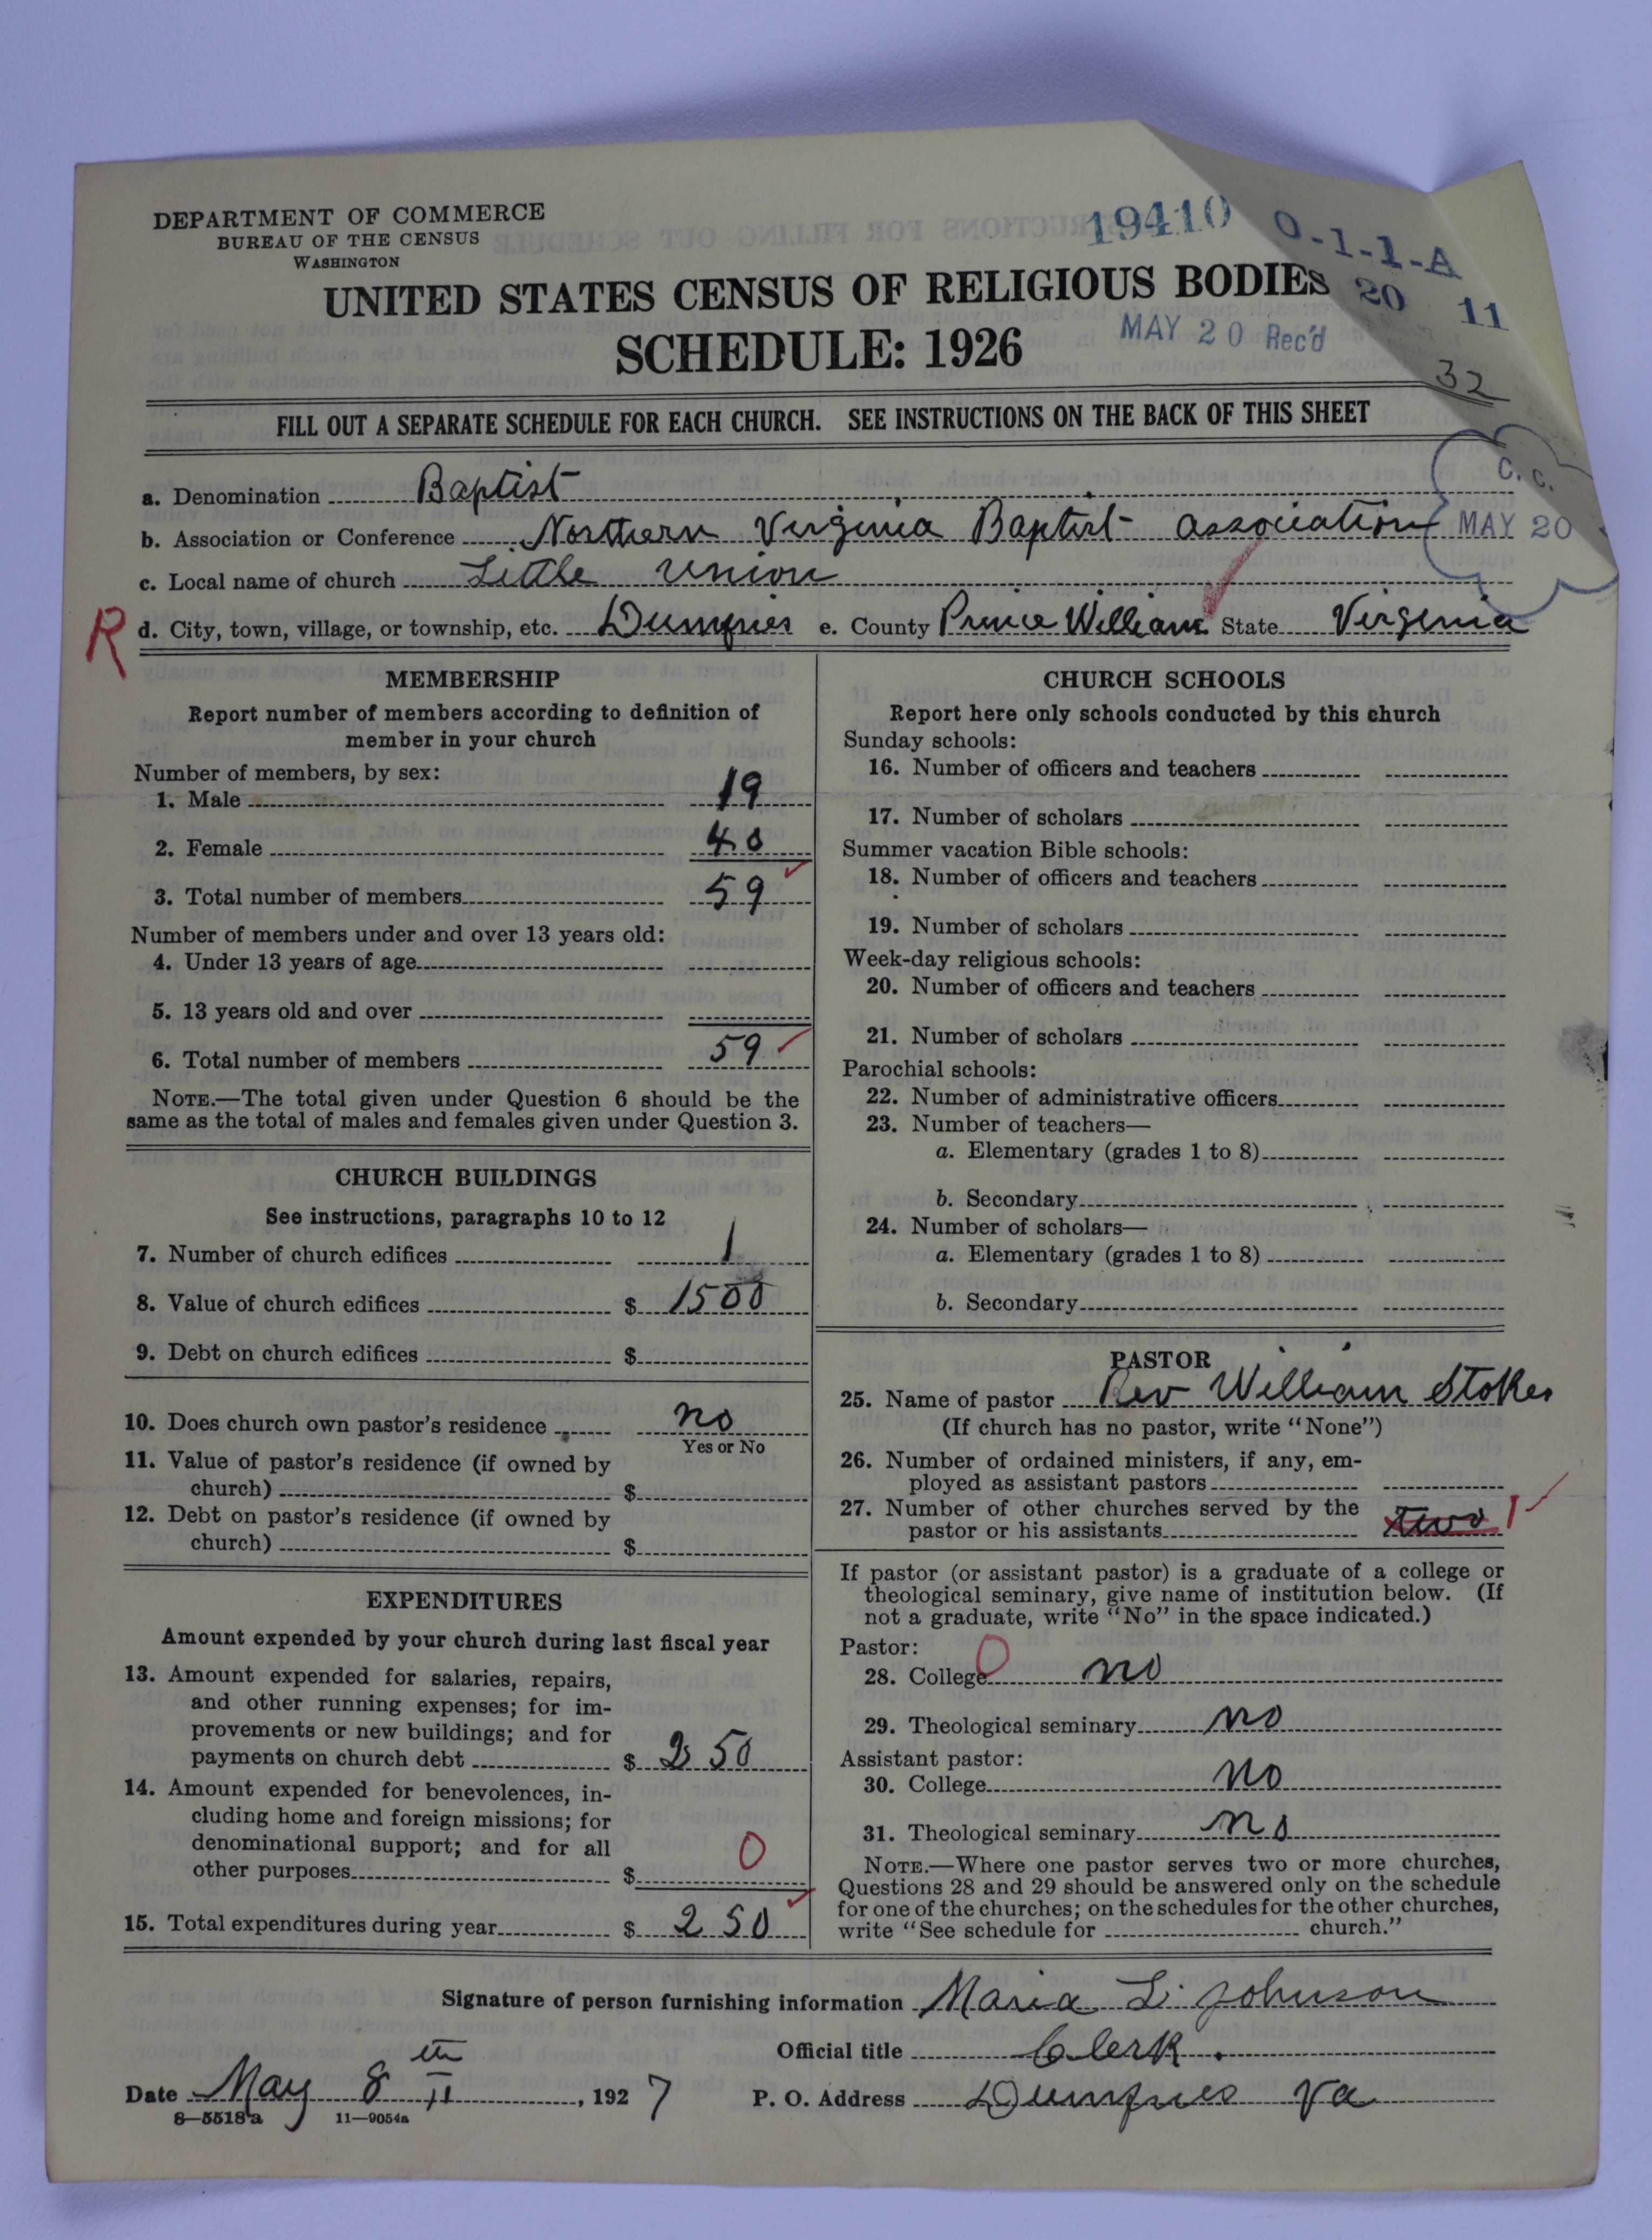 DEPARTMENT OF COMMERCE
BUREAU OF THE CENSUS
WASHINGTON
19410
0-1-1-A
20 11
UNITED STATES CENSUS OF RELIGIOUS BODIES
SCHEDULE: 1926
MAY 20 Rec'd
32
FILL OUT A SEPARATE SCHEDULE FOR EACH CHURCH. SEE INSTRUCTIONS ON THE BACK OF THIS SHEET
C. C.
MAY 20
a. Denomination Baptist
b. Association or Conference Northern Virginia Baptist association
c. Local name of church Little Union
R d. City, town, village, or township, etc. Dumfries e. County Prince William State Virginia
MEMBERSHIP
Report number of members according to definition of
member in your church
Number of members, by sex:
1. Male 19
2. Female 40
3. Total number of members 59
Number of members under and over 13 years old:
4. Under 13 years of age
5. 13 years old and over
6. Total number of members 59
NOTE.—The total given under Question 6 should be the
same as the total of males and females given under Question 3.
CHURCH BUILDINGS
See instructions, paragraphs 10 to 12
7. Number of church edifices 1
8. Value of church edifices $ 1500
9. Debt on church edifices $
10. Does church own pastor's residence no
Yes or No
11. Value of pastor's residence (if owned by
church) $
12. Debt on pastor's residence (if owned by
church) $
EXPENDITURES
Amount expended by your church during last fiscal year
13. Amount expended for salaries, repairs,
and other running expenses; for im-
provements or new buildings; and for
payments on church debt $ 250
14. Amount expended for benevolences, in-
cluding home and foreign missions; for
denominational support; and for all
other purposes $ 0
15. Total expenditures during year $ 250
CHURCH SCHOOLS
Report here only schools conducted by this church
Sunday schools:
16. Number of officers and teachers
17. Number of scholars
Summer vacation Bible schools:
18. Number of officers and teachers
19. Number of scholars
Week-day religious schools:
20. Number of officers and teachers
21. Number of scholars
Parochial schools:
22. Number of administrative officers
23. Number of teachers—
a. Elementary (grades 1 to 8)
b. Secondary
24. Number of scholars—
a. Elementary (grades 1 to 8)
b. Secondary
PASTOR
25. Name of pastor Rev William Stokes
(If church has no pastor, write "None")
26. Number of ordained ministers, if any, em-
ployed as assistant pastors
27. Number of other churches served by the
pastor or his assistants two 1
If pastor (or assistant pastor) is a graduate of a college or
theological seminary, give name of institution below. (If
not a graduate, write "No" in the space indicated.)
Pastor:
28. College 0 no
29. Theological seminary no
Assistant pastor:
30. College no
31. Theological seminary no
NOTE.—Where one pastor serves two or more churches,
Questions 28 and 29 should be answered only on the schedule
for one of the churches; on the schedules for the other churches,
write "See schedule for church."
Signature of person furnishing information Maria L. Johnson
Official title Clerk.
Date May 8th, 1927 P. O. Address Dumfries Va
8—5518a 11—9054a